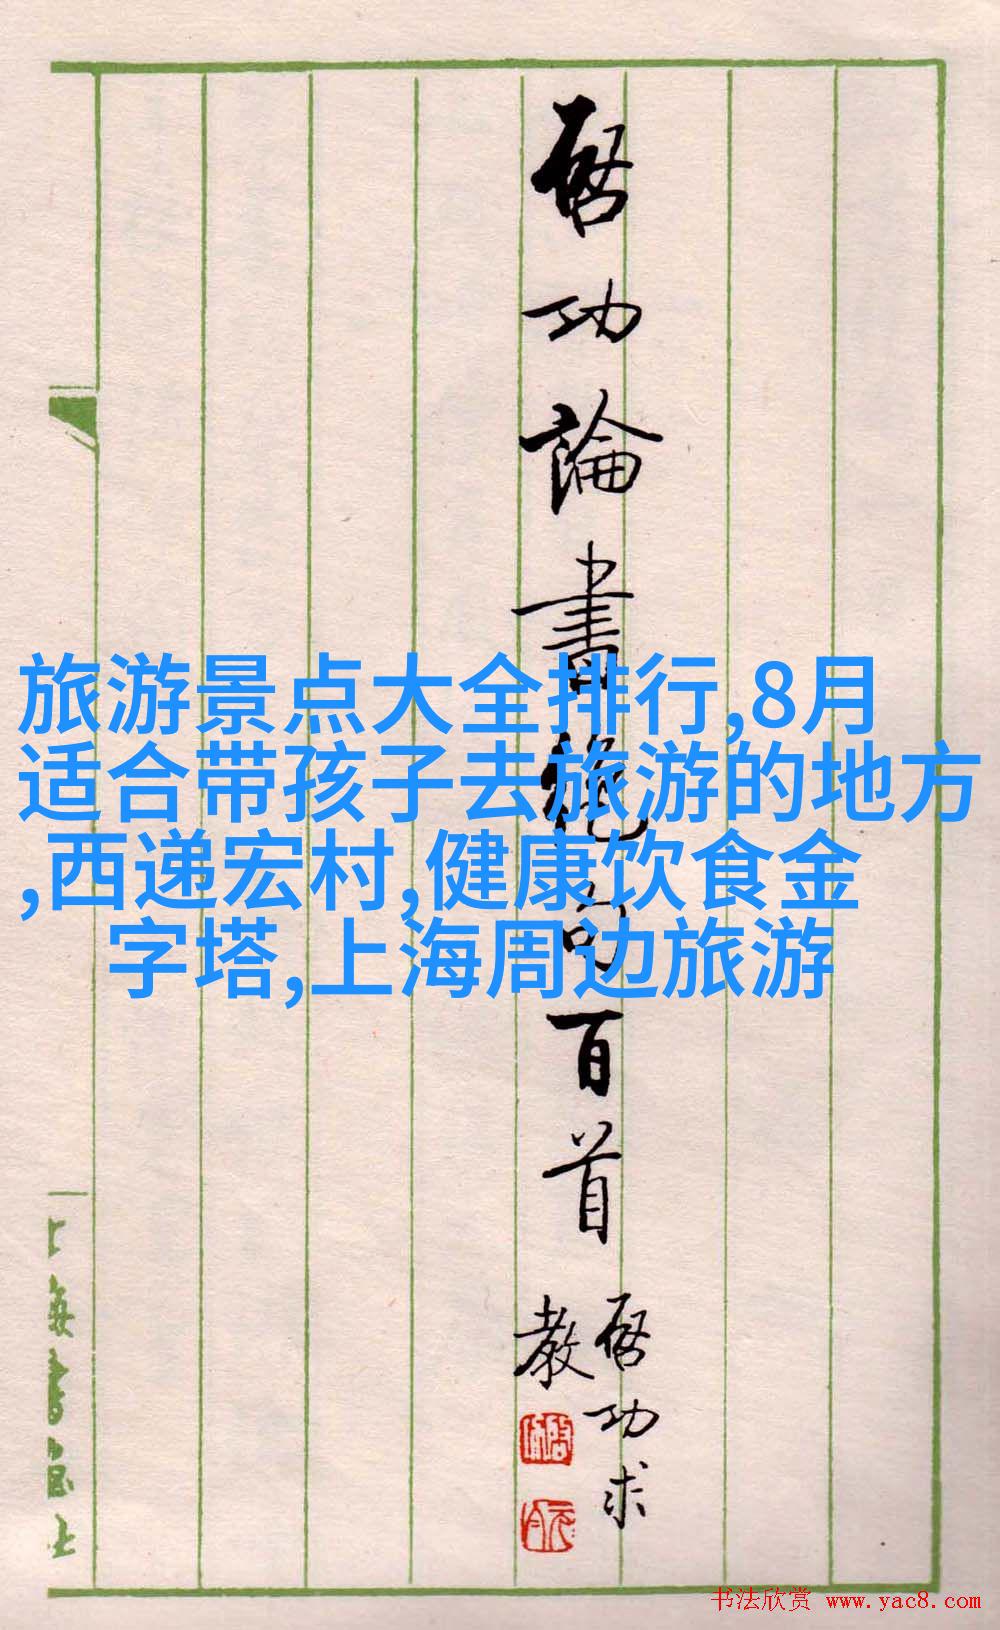 启功論書絕句百首
启功求
教
旅游景点大全排行,8月
适合带孩子去旅游的地方
,西递宏村,健康饮食金
字塔,上海周边旅游
上海書画社
书法欣赏 www.yac8.com